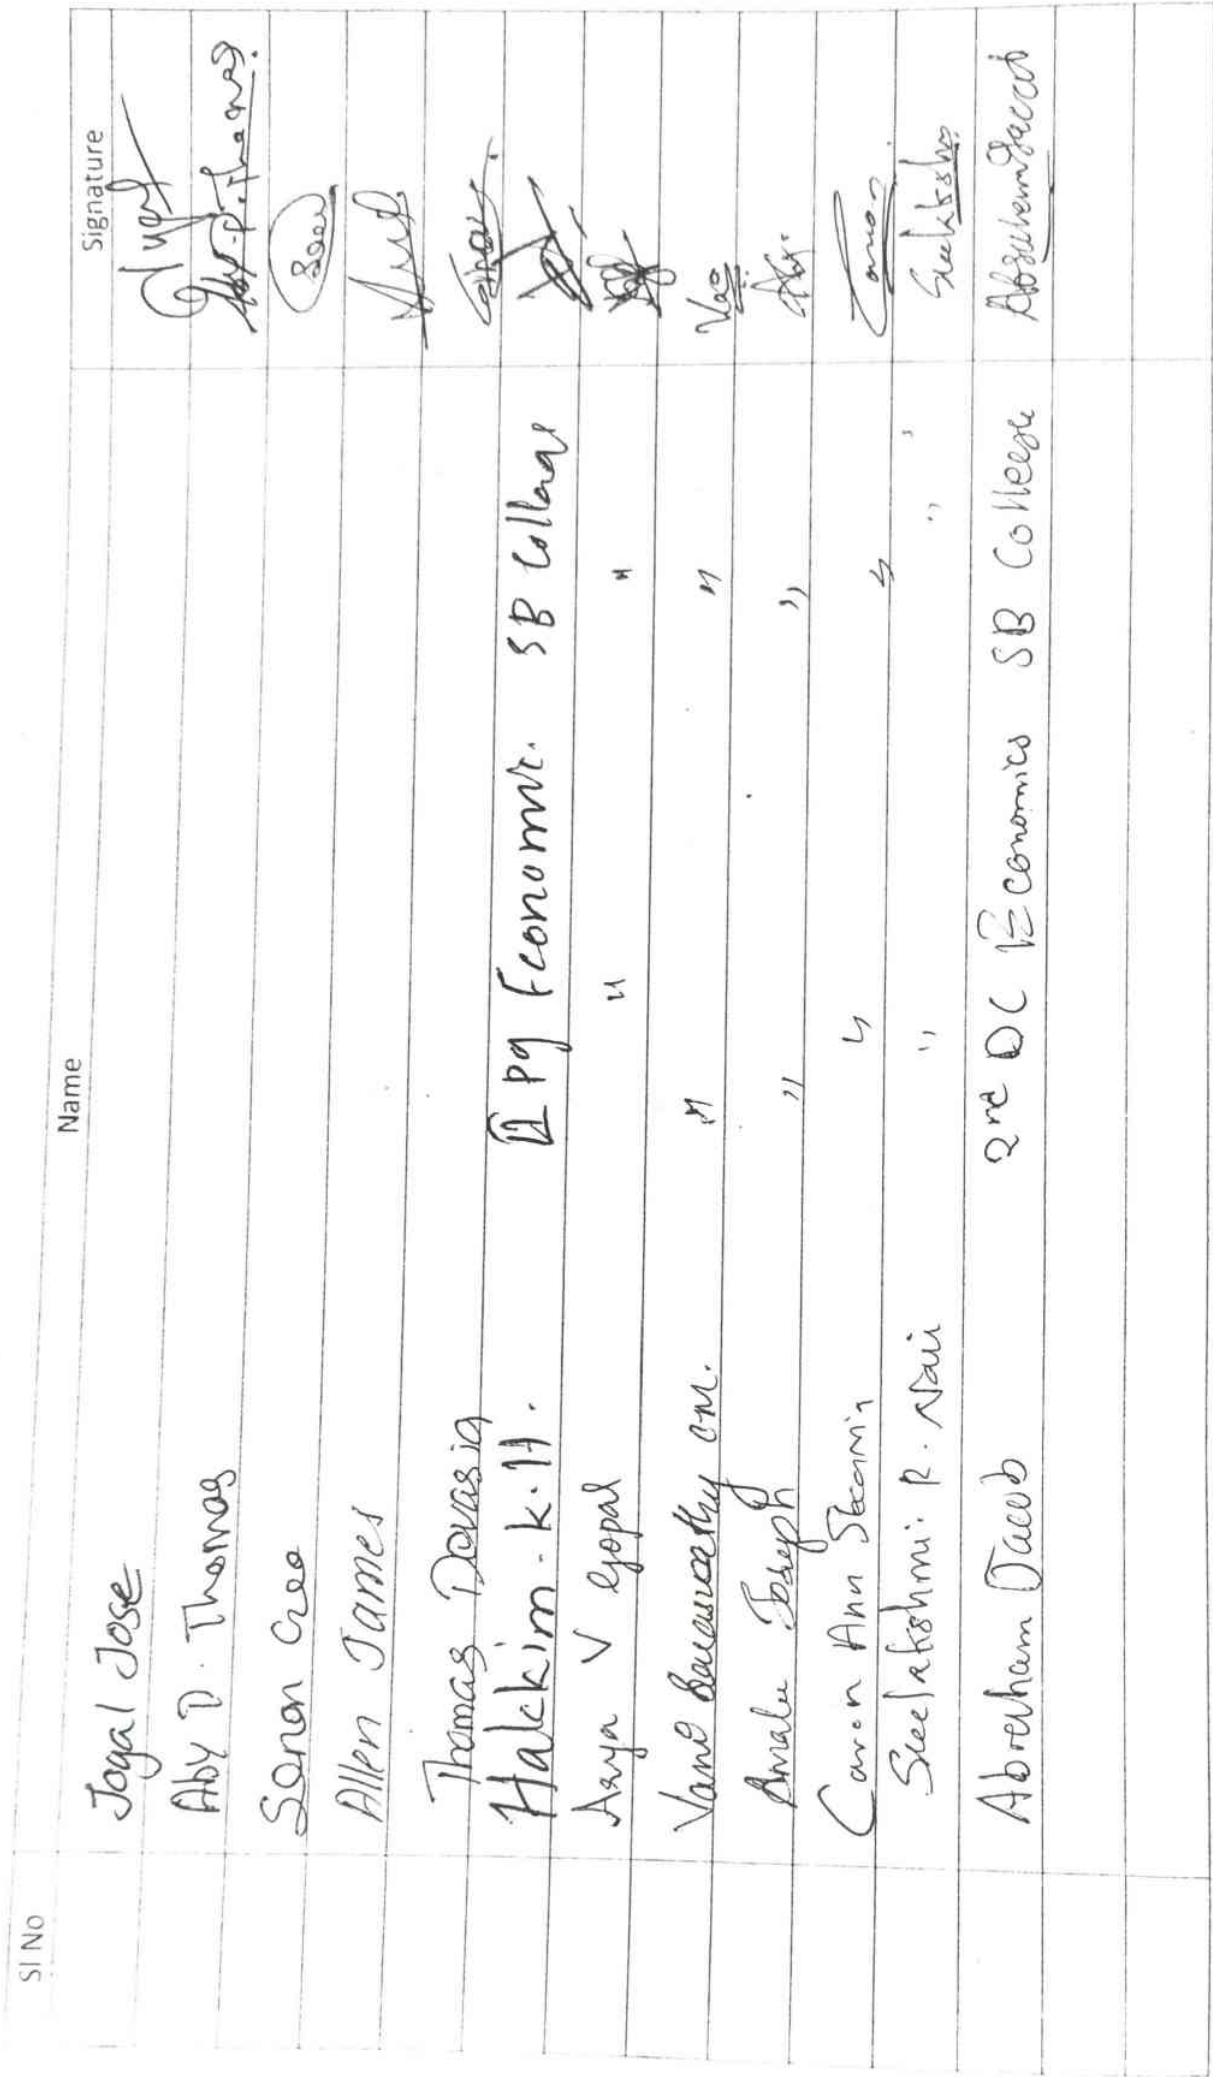 Sl No Name Signature
Jogal Jose
Aby D. Thomas Aby.P.Thomas.
Sonan
Allen James
Thomas Devasia
Halckim.K.H. II Pg Economic. SB College
Arya V Gopal " "
Vani Saraswathy " "
Amalu Joseph " "
Ann " "
Sreelakshmi.R.Nair " "
Abreham Jacob 2nd DC Economics SB College Abraham Jacob